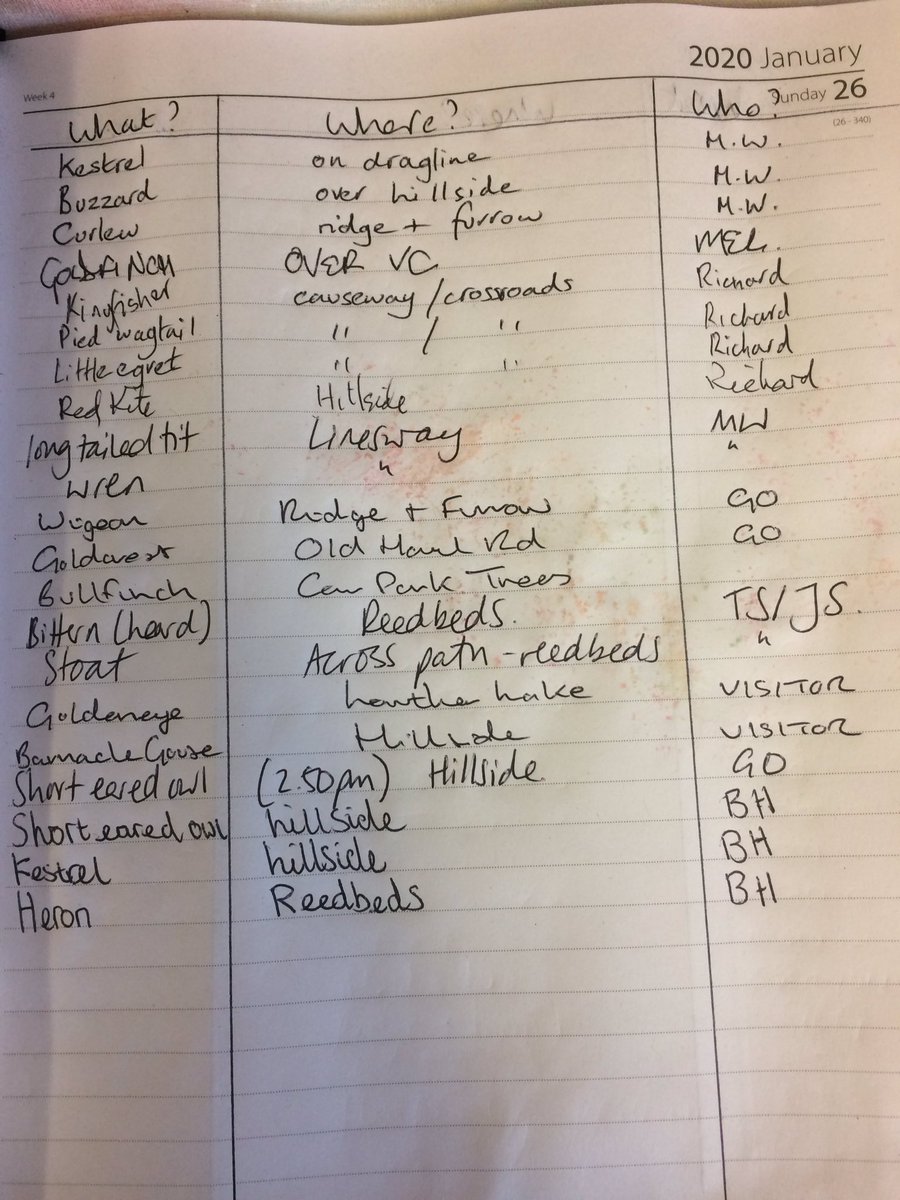 2020 January
Week 4 Sunday 26
(26 - 340)
What? Where? Who?
Kestrel on dragline M.W.
Buzzard over hillside M.W.
Curlew ridge + furrow M.W.
GOLDFINCH OVER VC MEL.
Kingfisher causeway / crossroads Richard
Pied wagtail " / " Richard
Little egret " " Richard
Red Kite Hillside Richard
long tailed tit Linesway MW
wren " "
Wigeon Ridge + Furrow GO
Goldcrest Old Haul Rd GO
Bullfinch Car Park Trees
Bittern (heard) Reedbeds. TS/JS.
Stoat Across path - reedbeds "
Goldeneye Lowther Lake VISITOR
Barnacle Goose Hillside VISITOR
Short eared owl (2.50pm) Hillside GO
Short eared owl hillside BH
Kestrel hillside BH
Heron Reedbeds BH